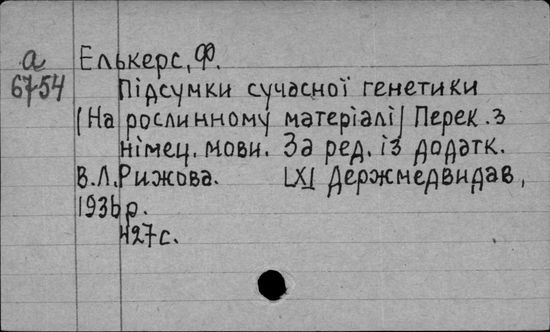 а
6754
Елькерс, Ф.
Підсумки сучасної генетики
/На рослинному матеріалі/ Перек. з
німец. мови. За ред. із додатк.
В.Л.Рижова. [Х] Держмедвидав,
1936р.
427с.